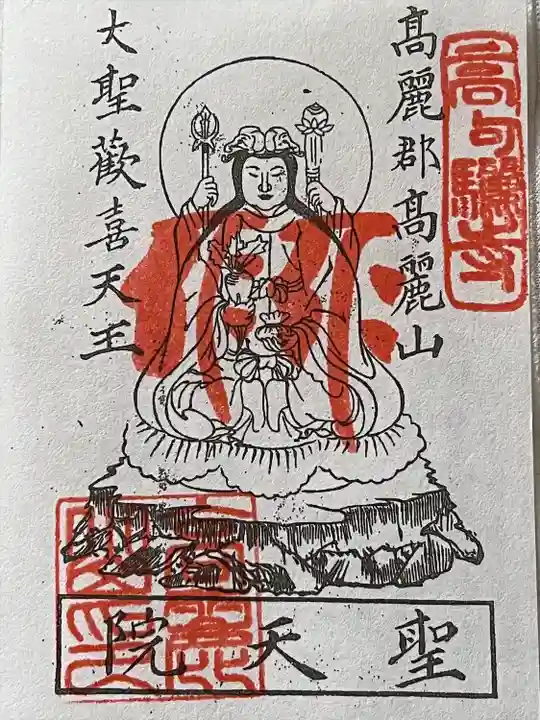 高句驪寺
高麗郡高麗山
大聖歡喜天王
聖天院